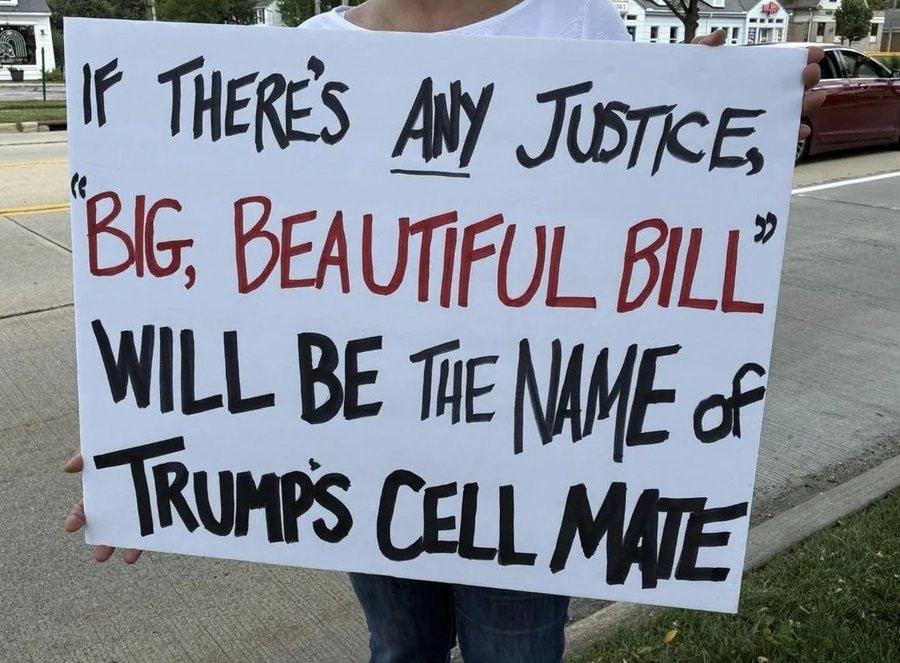 IF THERE'S ANY JUSTICE,
"BIG, BEAUTIFUL BILL"
WILL BE THE NAME of
TRUMP'S CELL MATE